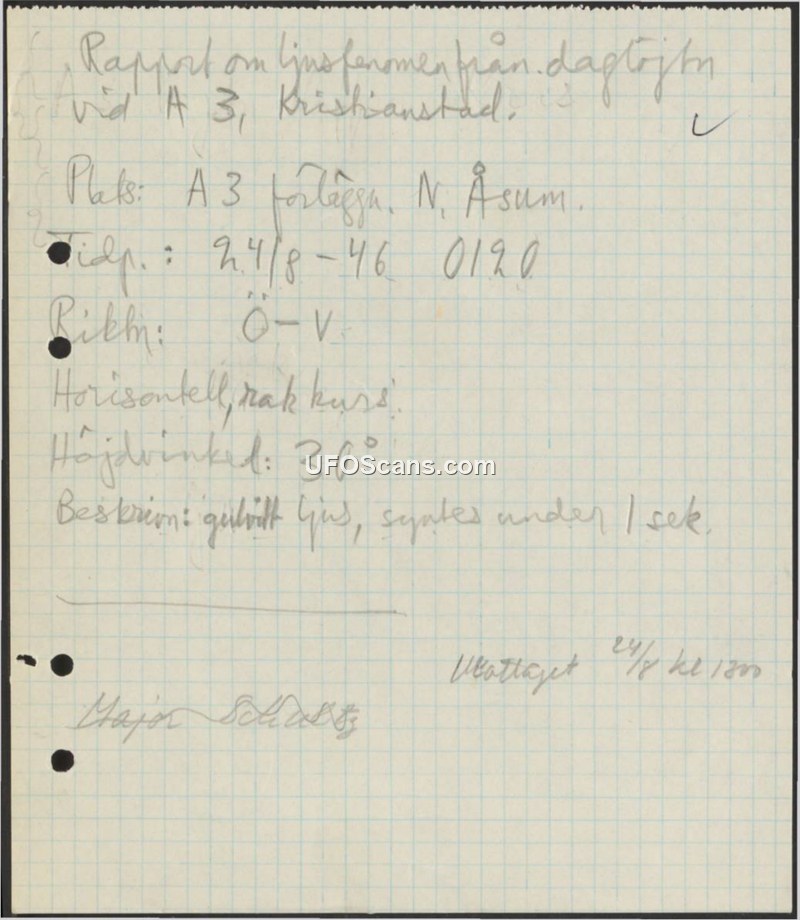 Rapport om ljusfenomen från daglöjtn
vid A 3, Kristianstad.
Plats: A 3 förläggn. N. Åsum.
Tidp.: 24/8 - 46 0120
Riktn: Ö - V
Horisontell, rak kurs.
Höjdvinkel: 30°
UFOScans.com
Beskrivn: gulvitt ljus, syntes under 1 sek.
24/8 kl 1300
Major